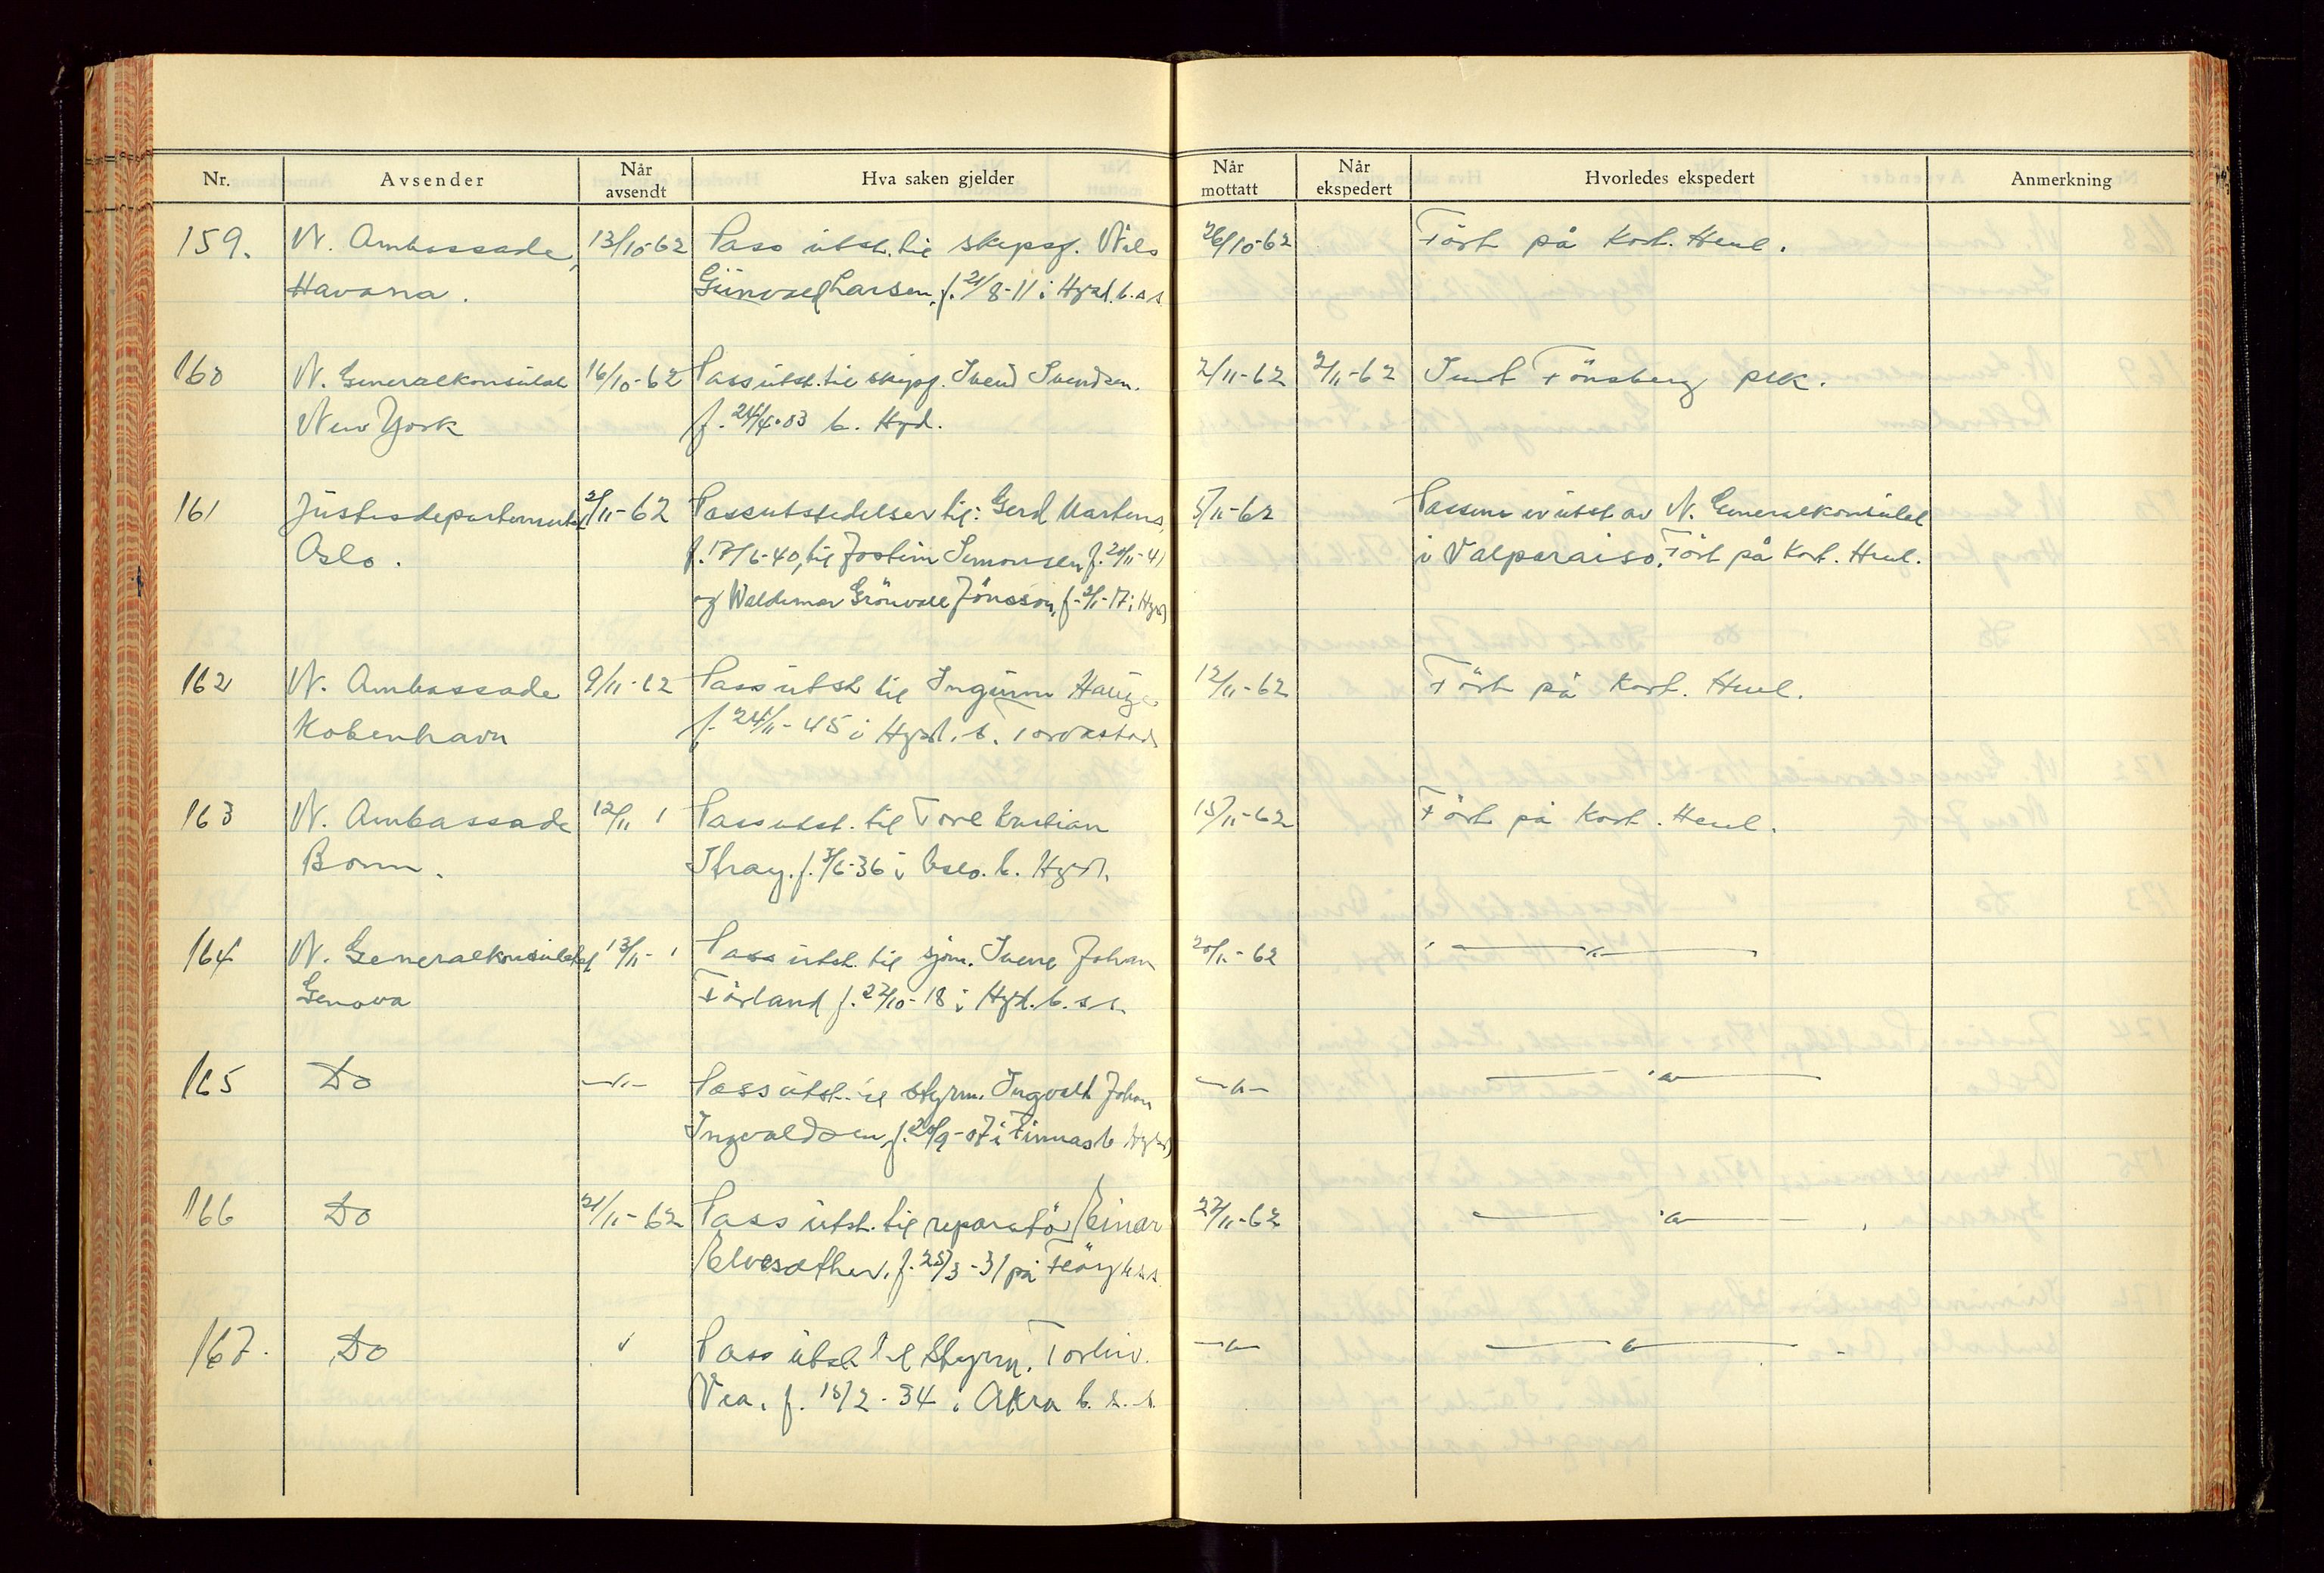 Nr. Avsender Når avsendt Hva saken gjelder Når mottatt Når ekspedert Hvorledes ekspedert Anmerkning
159. N. Ambassade, 13/10-62 Pass utst. til skipsf. Nils 26/10-62 Fört på Kort. Henl.
Havana. Larsen, f. 21/8-11 i Hgsd. b. s s
160 N. Generalkonsulat 16/10-62 Pass utst. til skipsf. Svend Svendsen. 2/11-62 2/11-62 Sent Tönsberg plk.
New York f. 24/4-03 b. Hgd.
161 Justisdepartementet 2/11-62 Passutstedelser til: Gerd Martens, 5/11-62 Passene er utst av N. Generalkonsulat
Oslo. f. 17/6-40, til Jostein Simonsen f. 20/11-41 i Valparaiso. Fört på Kort. Henl.
og Waldemar Grönvall Jönsson, f. 2/1-17 i Hgsd
162 N. Ambassade 9/11-62 Pass utst til Ingunn Hauge 12/11-62 Fört på Kort. Henl.
Kobenhavn f. 24/11-45 i Hgsd. b. Torvastad
163 N. Ambassade 12/11 Pass utst. til Tore Kristian 15/11-62 Fört på Kort. Henl.
Bonn. f. 3/6-36 i Oslo. b. Hgsd.
164 N. Generalkonsulatet 13/11- Pass utst. til sjøm. Sverre Johan 20/11-62 — " —
Genova Förland f. 22/10-18 i Hgd. b. s s.
165 Do — " — Pass utst. til styrm. Ingvald Johan — " — — " —
Ingvaldsen, f. 20/9-07 i Finnås b Hgsd
166 Do 21/11-62 Pass utst. til reparatör Einar 27/11-62 — " —
Elvesæther, f. 25/3-31 på b.s.s.
167. Do " Pass utst til Styrm. Torleiv — " — — " —
Vea, f. 15/2-34 i Akra b. s. s.